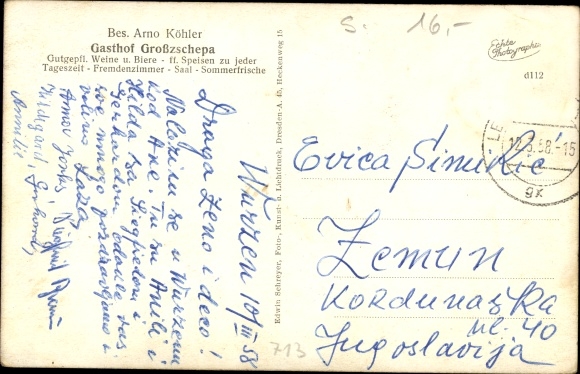 Bes. Arno Köhler
Gasthof Großzschepa
Gutgepfl. Weine u. Biere - ff. Speisen zu jeder
Tageszeit - Fremdenzimmer - Saal - Sommerfrische
S. 16,-
Echte Photographie
d112
12.3.58.-15
gx
Edwin Schreyer, Foto-, Kunst- u. Lichtdruck, Dresden-A. 45, Heckenweg 15
Wurzen 10/III 58
Draga ženo i deco!
Nalazim se u Wurzenu
kod Ane. Tu su Anili i
Hilda sa Siegfredom i
Gerhardom odavle vas
sve mnogo pozdravljamo i
volimo
Hildgard, Gerhard,
Annelie
Evica Simikić
Zemun
Kordunaška
ul. 40
Jugoslavija
713